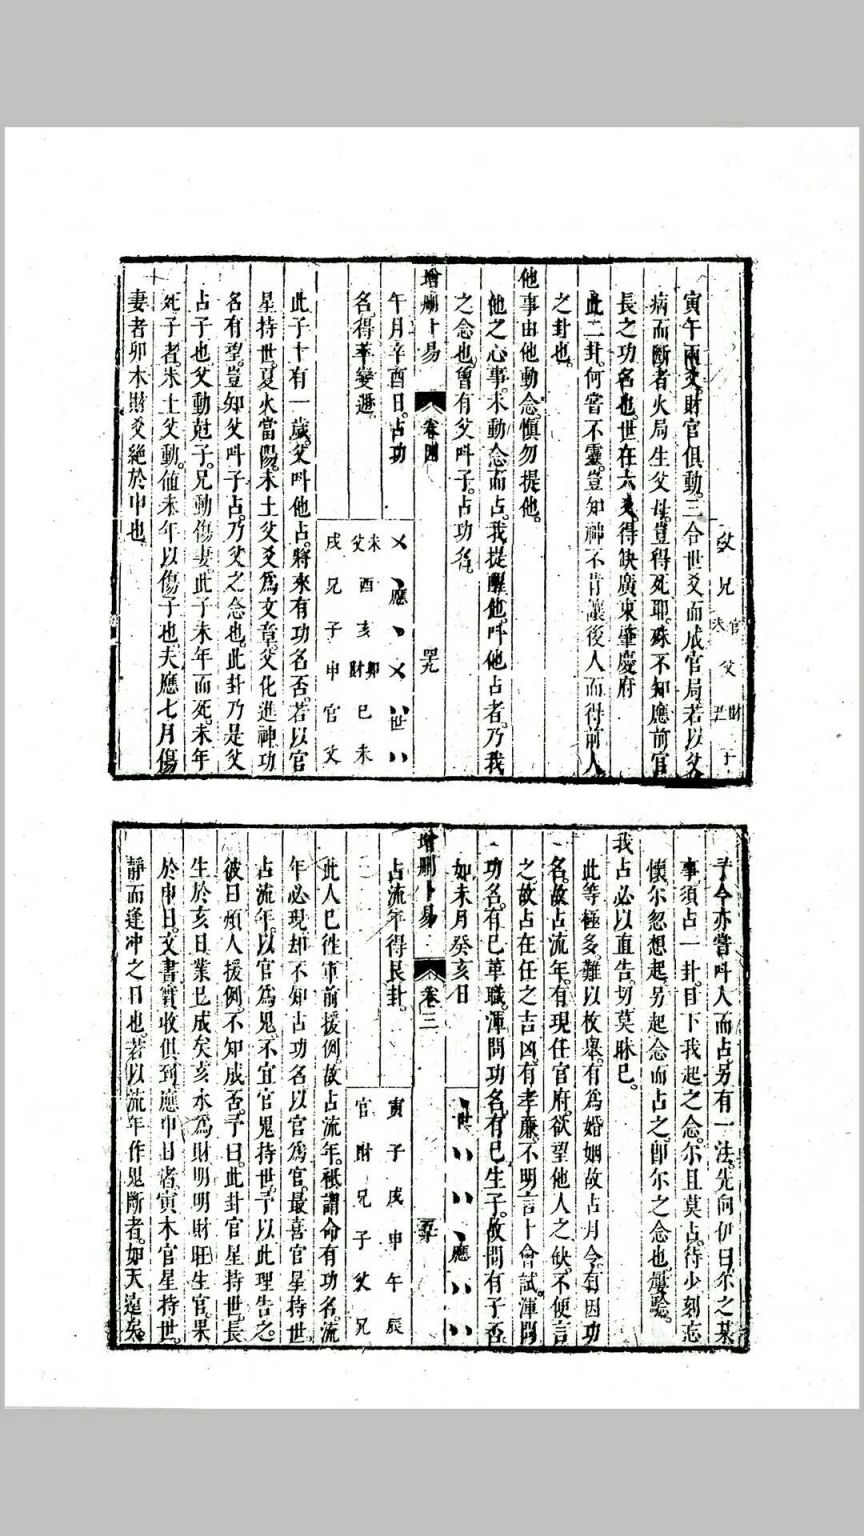 父兄官父財子
未　丑
寅午兩爻財官俱動三合世爻而成官局若以父
病而斷者火局生父母豈得死耶殊不知應前官
長之功名也世在六爻得缺廣東肇慶府
此二卦何嘗不靈豈知神不肯讓後人而得前人
之卦也
他事由他動念愼勿提他
他之心事未動念而占我提醒他呌他占者乃我
之念也曾有父呌子占功名
增刪卜易　卷四　四九
午月辛酉日占功
名得革變遯
乂、應、乂世
未酉亥卯巳未
父　財
戌兄子申官父
此子十有一歲父呌他占將來有功名否若以官
星持世夏火當陽未土父爻爲文章父化進神功
名有望豈知父呌子占乃父之念也此卦乃是父
占子也父動尅子兄動傷妻此子未年而死未年
死子者未土父動値未年以傷子也夫應七月傷
妻者卯木財爻絶於申也
予今亦嘗呌人而占另有一法先向伊曰尔之某
事須占一卦目下我起之念尔且莫占待少刻忘
懷尔忽想起另起念而占之卽尔之念也屢驗
我占必以直告切莫昧已
此等極多難以枚舉有爲婚姻故占月令有因功
名故占流年有現任官府欲望他人之缺不便言
之故占在任之吉凶有孝廉不明言十會試渾問
功名有已革職渾問功名有已生子故問有子否
如未月癸亥日
增刪卜易　卷三　五十
占流年得艮卦
世　應
寅子戌申午辰
官財兄子父兄
此人已徃軍前援例故占流年祗謂命有功名流
年必現却不知占功名以官爲官最喜官星持世
占流年以官爲鬼不宜官鬼持世予以此理告之
彼曰煩人援例不知成否予曰此卦官星持世長
生於亥日業已成矣亥水爲財明明財旺生官果
於申日文書實收俱到應申日者寅木官星持世
靜而逢冲之日也若以流年作鬼斷者如天遠矣